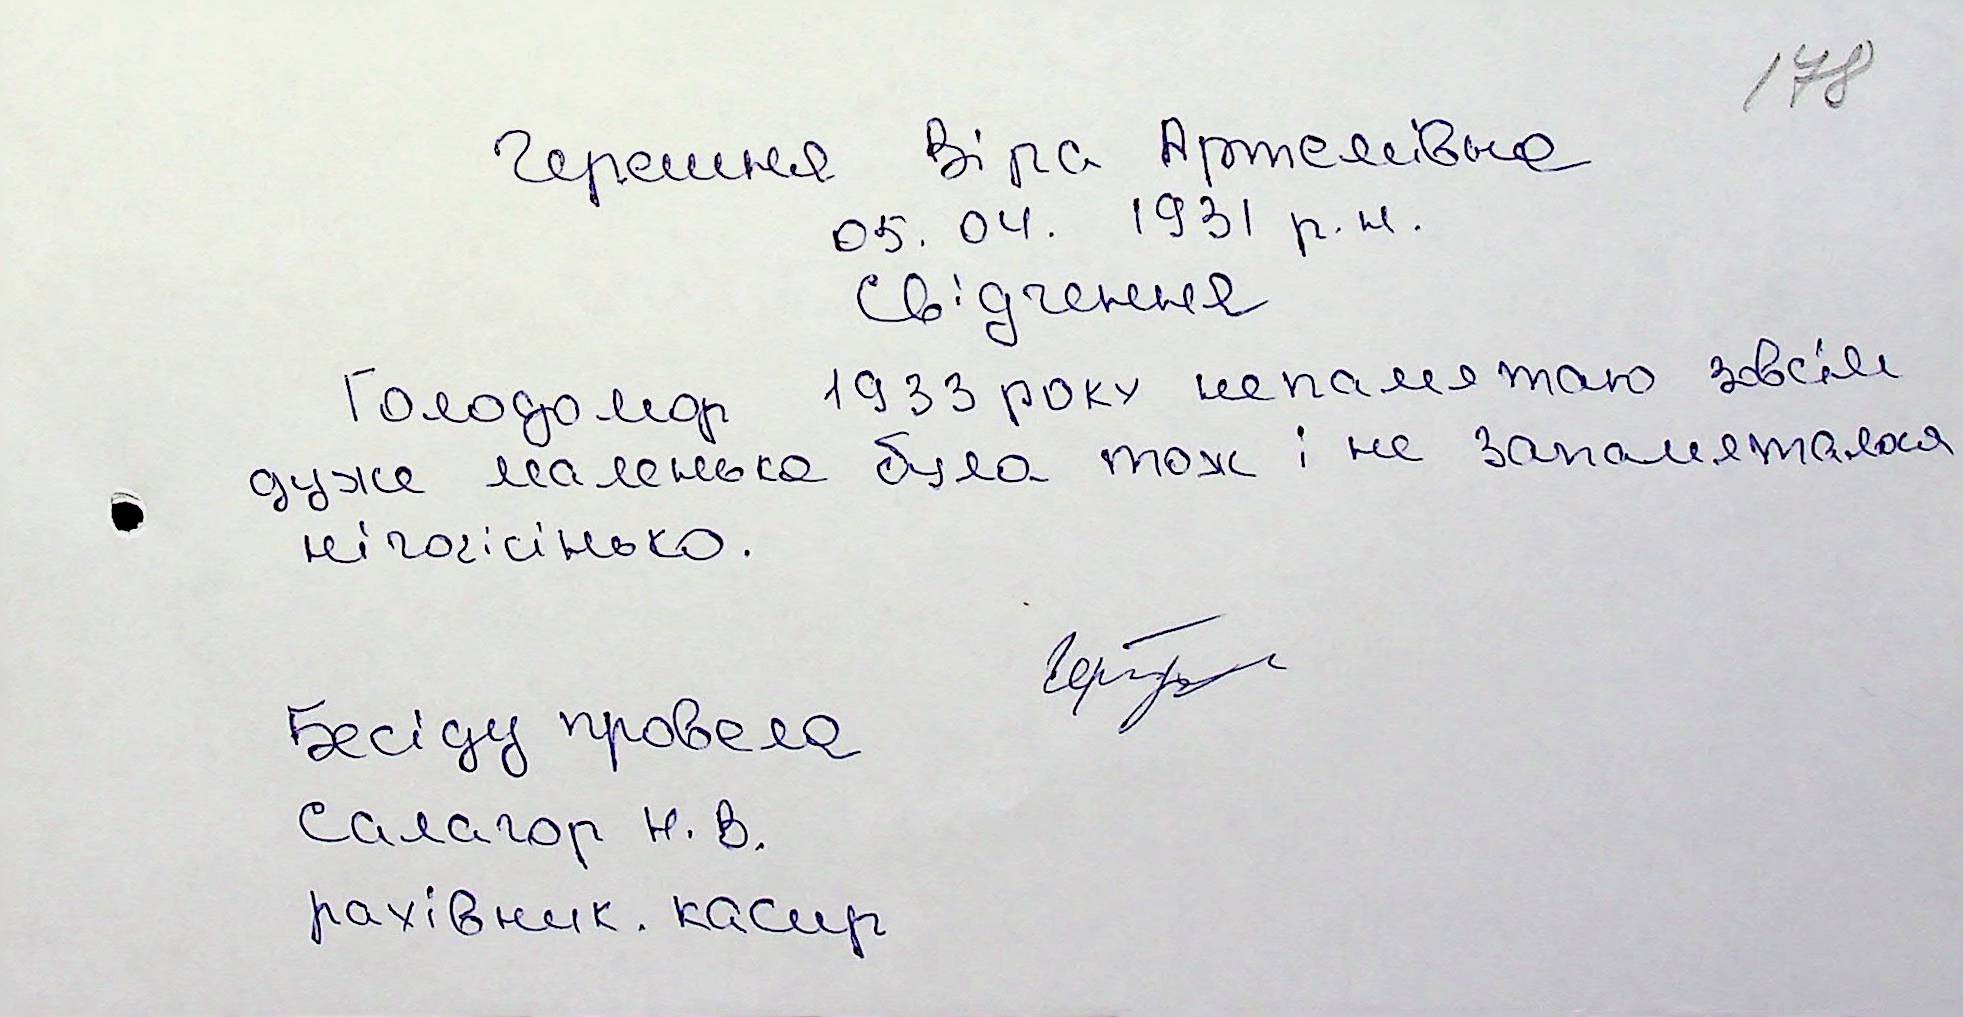 178
Черешня Віра Артемівна
05. 04. 1931 р.н.
Свідчення
Голодомор 1933 року непамятаю зовсім
дуже маленька була тож і не запамяталося
нічогісінько.
Бесіду провела
Салагор Н.В.
рахівник. касир